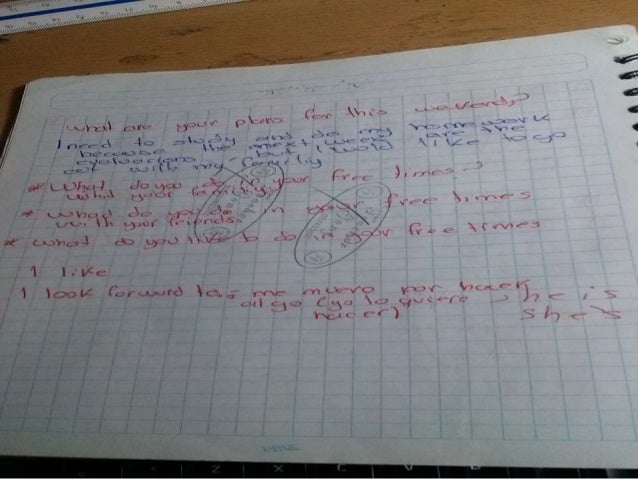 what are your plans for this weekends?
I need to study and do my homework
because the next week are the
evaluacions, that I would like to go
out with my family
* What do you do in your free times?
with your family?
* what do you do in your free times
with your friends
* what do you like to do in your free times
I like
I look forward to = me muero por hacer
algo (yo lo quiero he is
hacer) she's